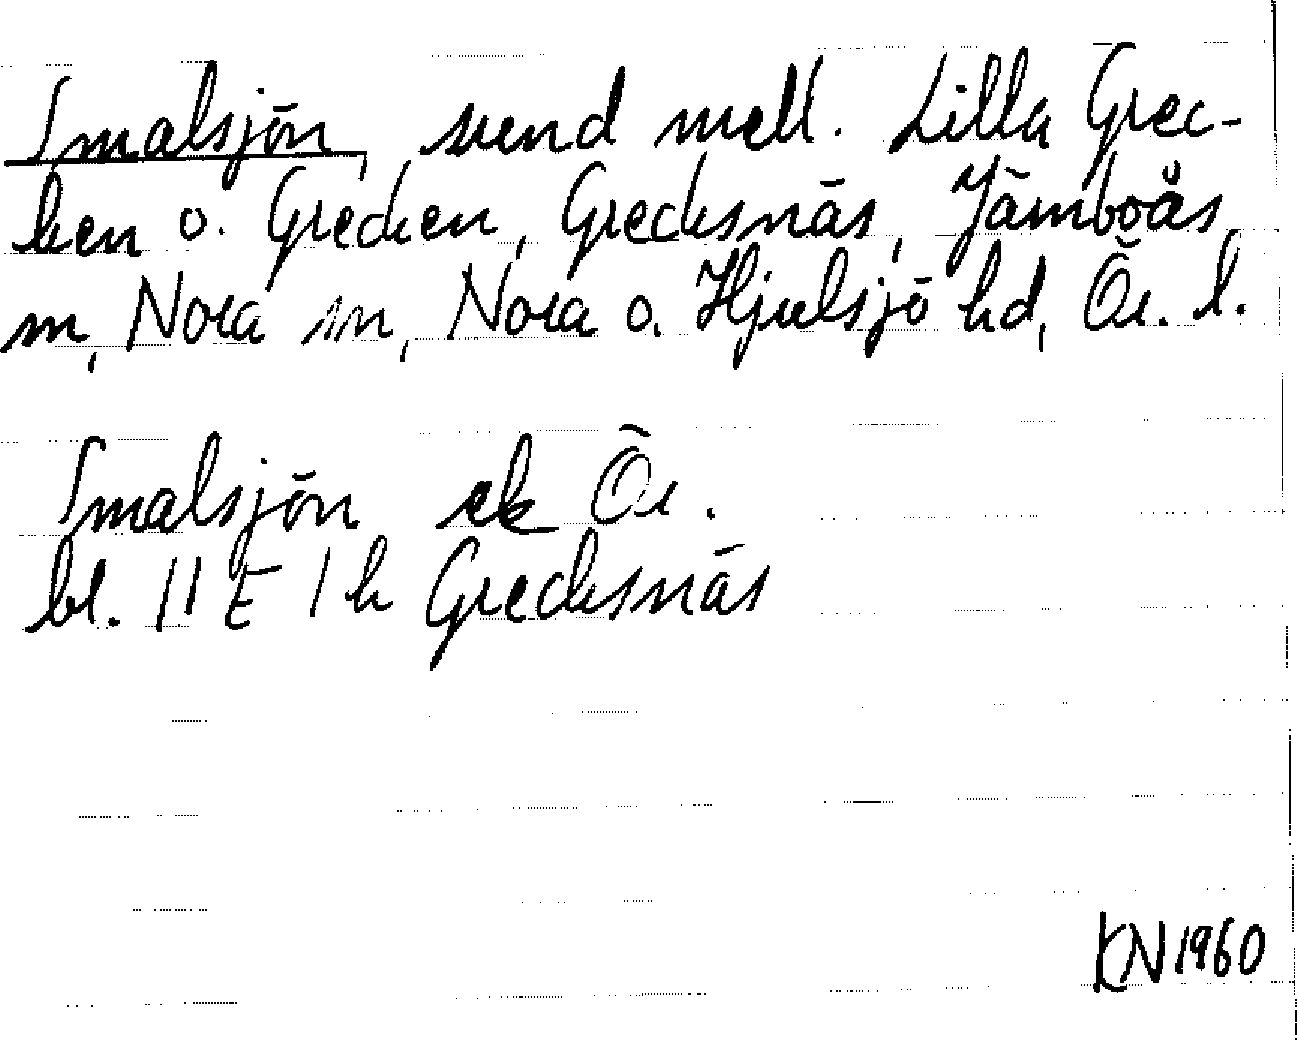 Smalsjön, sund mell. Lilla Grec-
ken o. Grecken, Grecksnäs, Järnboås
sn, Nora sn, Nora o. Hjulsjö hd, Ör. l.
Smalsjön ek Ör.
bl. 11 E 1 h Grecksnäs
KN 1960